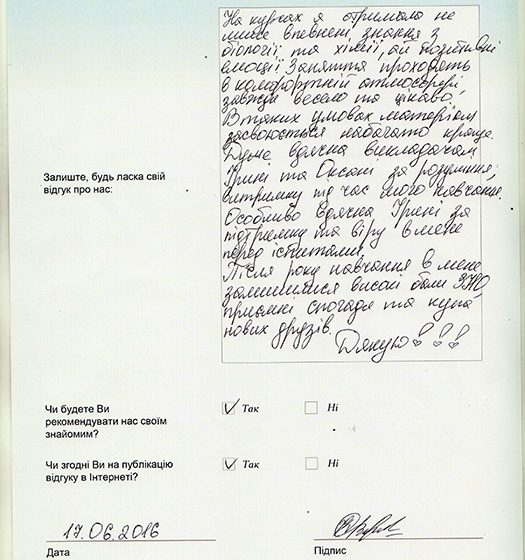 На курсах я отримала не
лише впевнені знання з
біології та хімії, ай позитивні
емоції. Заняття проходять
в комфортній атмосфері,
завжди весело та цікаво.
В таких умовах матеріал
засвоюється набагато краще.
Дуже вдячна викладачам
Ірині та Оксані за розуміння,
витримку під час мого навчання.
Особливо вдячна Ірині за
підтримку та віру в мене
перед іспитами.
Після року навчання в мене
залишилися високі бали ЗНО,
приємні спогади та купа
нових друзів.
Дякую!!!
Залиште, будь ласка свій
відгук про нас:
Чи будете Ви
рекомендувати нас своїм
знайомим?
Так Ні
Чи згодні Ви на публікацію
відгуку в Інтернеті?
Так Ні
17.06.2016
Дата Підпис